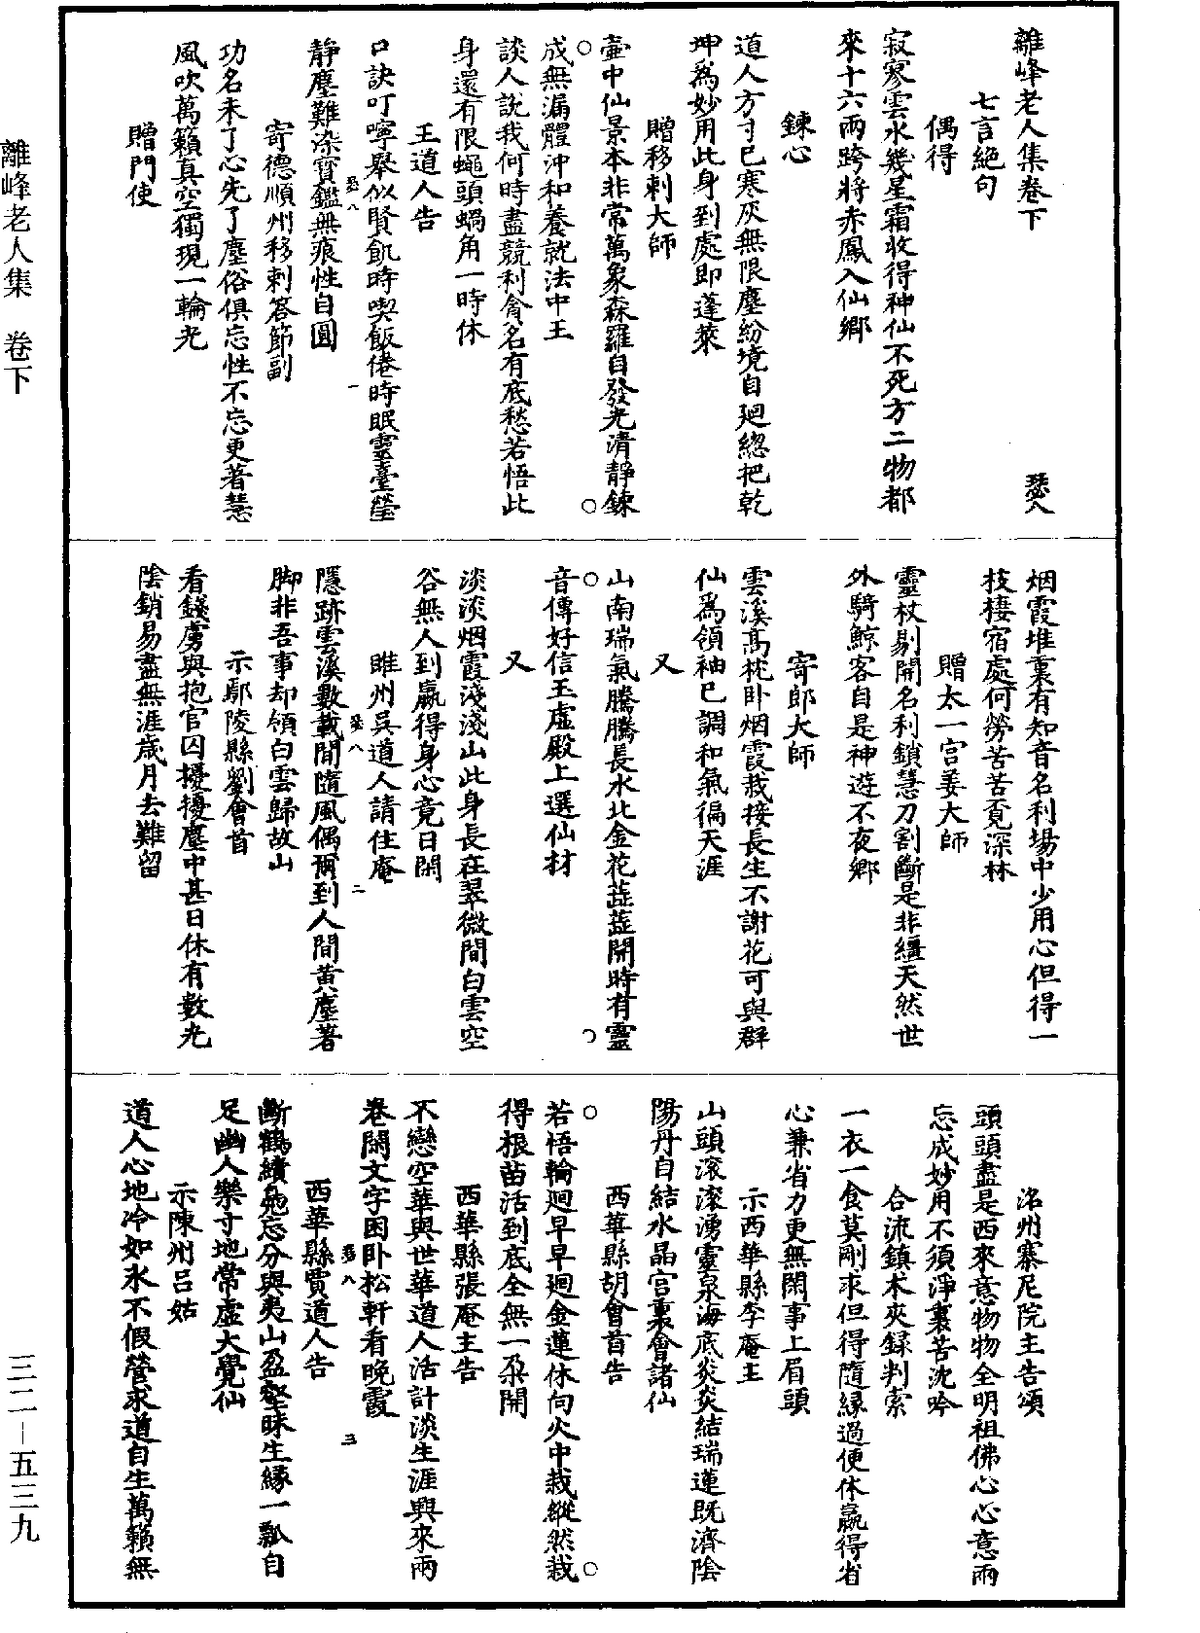 離峰老人集卷下
瑟八
七言絕句
偶得
寂寥雲水幾星霜收得神仙不死方二物都
來十六兩跨將赤鳳入仙鄉
鍊心
道人方寸已寒灰無限塵紛境自廻緫把乾
坤為妙用此身到處即蓬萊
贈移剌大師
壷中仙景本非常萬象森羅自發光清靜鍊
成無漏體沖和養就法中王
談人說我何時盡競利貪名有底愁若悟此
身還有限蠅頭蝸角一時休
王道人告
口訣叮嚀舉似賢飢時喫飯倦時眠靈臺瑩
靜塵難染寶鑑無痕性自圓
瑟八
一
寄德順州移剌荅節副
功名未了心先了塵俗俱忘性不忘更著慧
風吹萬籟真空獨現一輪光
贈門使
烟霞堆裏有知音名利場中少用心但得一
枝棲宿處何勞苦苦覔深林
贈太一宫姜大師
靈杖剔開名利鎖慧刀割斷是非繮天然世
外騎鯨客自是神遊不夜鄉
寄郎大師
雲溪高枕卧烟霞栽接長生不謝花可與群
仙為領袖已調和氣徧天涯
又
山南瑞氣騰騰長水北金花蓝蓝開時有靈
音傳好信玉虛殿上選仙材
又
淡淡烟霞淺淺山此身長在翠微間白雲空
谷無人到贏得身心竟日閑
睢州吳道人請住庵
瑟八
二
隱跡雲溪數載閒隨風偶爾到人間黃塵著
脚非吾事却領白雲歸故山
示鄢陵縣劉會首
看錢虜與抱官囚擾擾塵中甚日休有數光
陰銷易盡無涯歲月去難留
洺州寨尼院主告頌
頭頭盡是西來意物物全明祖佛心心意兩
忘成妙用不須淨裏苦沈吟
合流鎮术夾録判索
一衣一食莫剛求但得隨緣過便休贏得省
心兼省力更無閑事上眉頭
示西華縣李庵主
山頭滚滚湧靈泉海底炎炎結瑞蓮既濟陰
陽丹自結水晶宫裏會諸仙
西華縣胡會首告
若悟輪廻早早廻金蓮休向火中栽縱然栽
得根苗活到底全無一朶開
西華縣張庵主告
不戀空華與世華道人活計淡生涯興來兩
卷閑文字困卧松軒看晚霞
瑟八
三
西華縣賈道人告
斷鶴續鳬忘分與夷山盈壑昧生緣一瓢自
足幽人樂寸地常虛大覺仙
示陳州呂姑
道人心地冷如氷不假營求道自生萬籟無
離峰老人集　卷下
三二－五三九